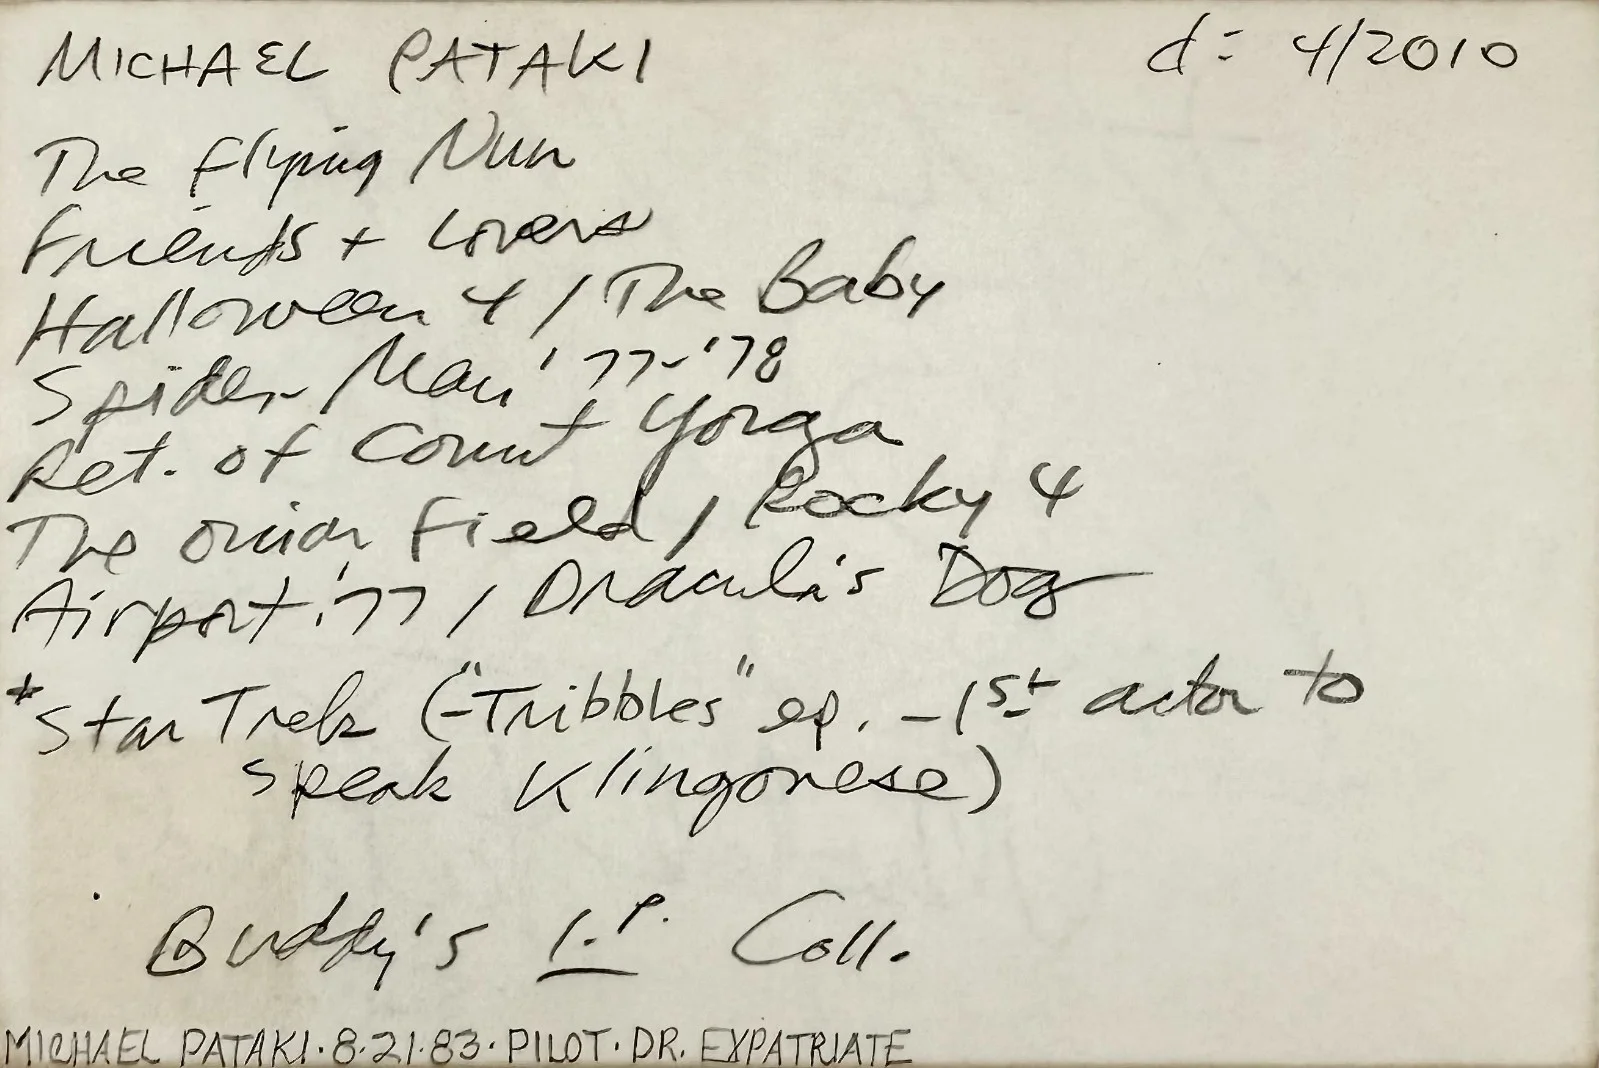 MICHAEL PATAKI d: 4/2010
The Flying Nun
Friends + Lovers
Halloween 4 / The Baby
Spider-Man '77-'78
Ret. of Count Yorga
The Onion Field / Rocky 4
Airport '77 / Dracula's Dog
*Star Trek ("Tribbles" ep. - 1st actor to
speak Klingonese)
Buddy's 1.P. Coll.
MICHAEL PATAKI · 8·21·83 · PILOT · DR. EXPATRIATE